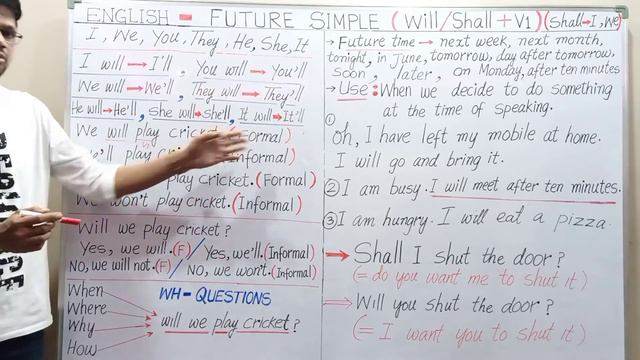 ENGLISH - FUTURE SIMPLE (Will/Shall + V1) (Shall→I, We)
I, We, You, They, He, She, It
I will → I'll , You will → You'll
We will → We'll , They will → They'll
He will → He'll , She will → She'll , It will → It'll
We will play cricket. (Formal)
V1
'll play cricket. (Informal)
play cricket. (Formal)
We won't play cricket. (Informal)
Will we play cricket?
Yes, we will. (F) / Yes, we'll. (Informal)
No, we will not. (F) / No, we won't. (Informal)
WH-QUESTIONS
When
Where
Why
How
will we play cricket?
→ Future time → next week, next month,
tonight, in June, tomorrow, day after tomorrow,
soon, later, on Monday, after ten minutes
→ Use : When we decide to do something
at the time of speaking.
① Oh, I have left my mobile at home.
I will go and bring it.
② I am busy. I will meet after ten minutes.
③ I am hungry. I will eat a pizza.
→ Shall I shut the door?
(= do you want me to shut it)
⇒ Will you shut the door?
(= I want you to shut it)